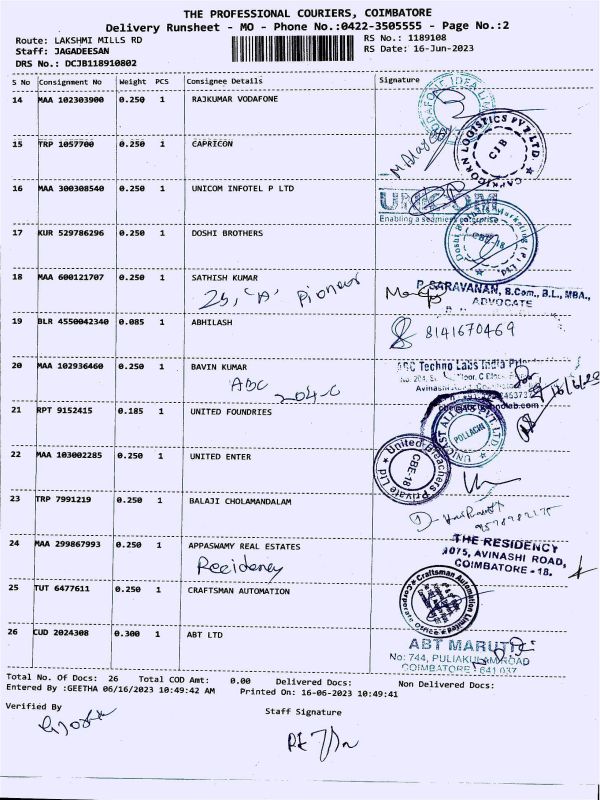 THE PROFESSIONAL COURIERS, COIMBATORE
Delivery Runsheet - MO - Phone No.:0422-3505555 - Page No.:2
Route: LAKSHMI MILLS RD
RS No.: 1189108
Staff: JAGADEESAN
RS Date: 16-Jun-2023
DRS No.: DCJB118910802
S No Consignment No Weight PCS Consignee Details Signature
14 MAA 102303900 0.250 1 RAJKUMAR VODAFONE
VODAFONE IDEA
15 TRP 1057700 0.250 1 CAPRICON
CAPRICORN LOGISTICS PVT LTD.
CJB
16 MAA 300308540 0.250 1 UNICOM INFOTEL P LTD
UNICOM
Enabling a seamless enterprise
17 KUR 529786296 0.250 1 DOSHI BROTHERS
18 MAA 600121707 0.250 1 SATHISH KUMAR
25, 'A' Pioneer
P. SARAVANAN, B.Com., B.L., MBA.,
ADVOCATE
19 BLR 4550042340 0.085 1 ABHILASH
8141670469
20 MAA 102936460 0.250 1 BAVIN KUMAR
ABC
204-C
ABC Techno Labs India
21 RPT 9152415 0.185 1 UNITED FOUNDRIES
POLLACHI
22 MAA 103002285 0.250 1 UNITED ENTER
United Bleachers Private Ltd
CBE-18
23 TRP 7991219 0.250 1 BALAJI CHOLAMANDALAM
24 MAA 299867993 0.250 1 APPASWAMY REAL ESTATES
Residency
THE RESIDENCY
1075, AVINASHI ROAD,
COIMBATORE - 18.
25 TUT 6477611 0.250 1 CRAFTSMAN AUTOMATION
Craftsman Automation Limited
Corporate Office
26 CUD 2024308 0.300 1 ABT LTD
ABT MARUTI
No: 744, PULIAKULAM ROAD
COIMBATORE - 641 037
Total No. Of Docs: 26 Total COD Amt: 0.00 Delivered Docs: Non Delivered Docs:
Entered By :GEETHA 06/16/2023 10:49:42 AM Printed On: 16-06-2023 10:49:41
Verified By
Staff Signature